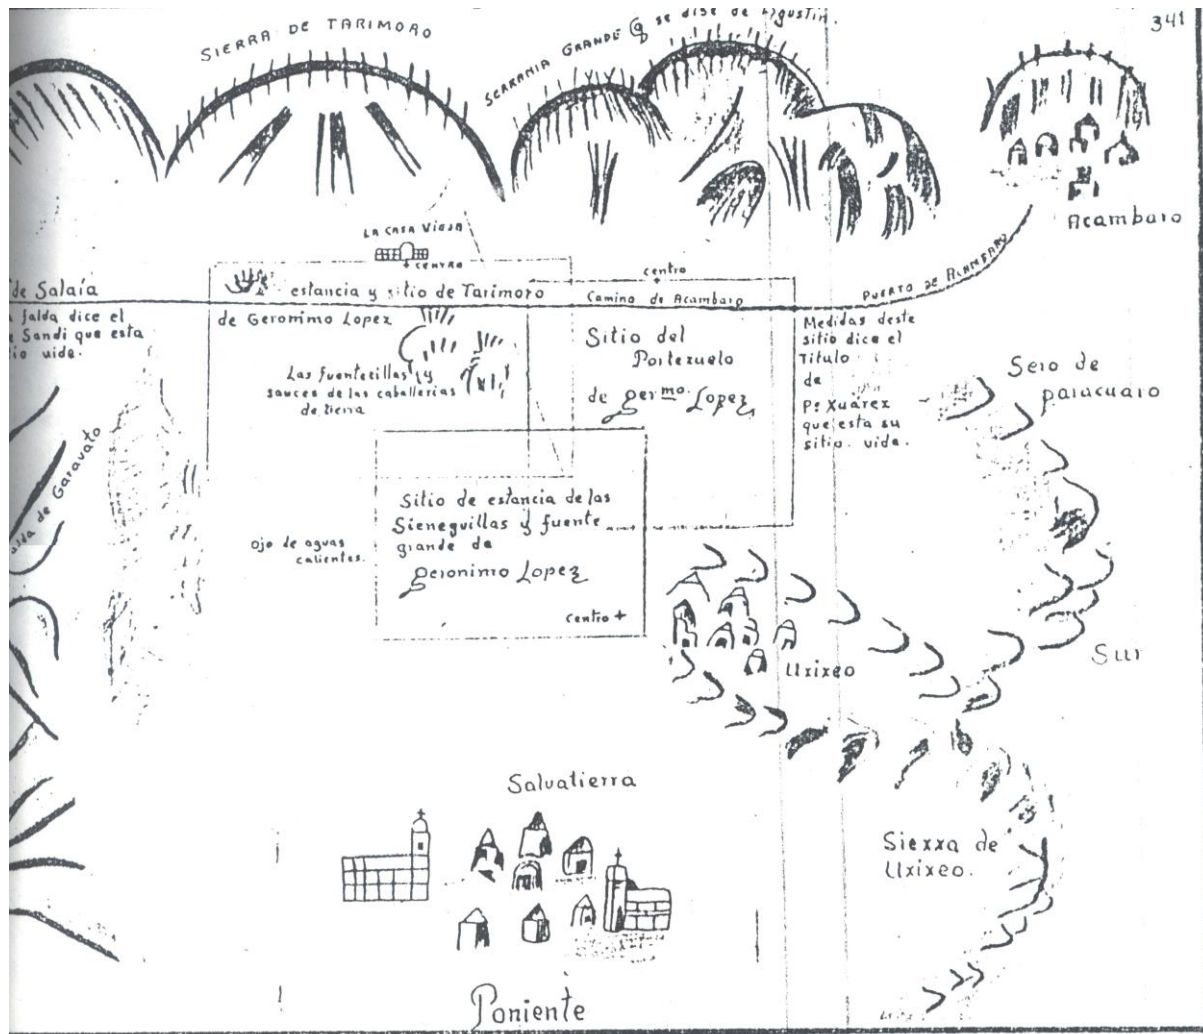 341
SIERRA DE TARIMORO
SERRANIA GRANDE q se dise de Agustin.
Acambaro
LA CASA VIEJA
CENTRO
centro
PUERTO DE ACAMBARO
de Salaía
estancia y sitio de Tarimoro
Camino de Acambaro
falda dice el
Sandi que esta
uide.
de Geronimo Lopez
Las fuentecillas y
sauces de las caballerias
de tierra
Sitio del
Portezuelo
de germo. Lopez
Medidas deste
sitio dice el
Titulo
de
Po Xuárez
que esta su
sitio. uide.
Sero de
paracuaro
de Garavato
Sitio de estancia de las
Sieneguillas y fuente
grande de
Geronimo Lopez
centro
ojo de aguas
calientes.
Uxixeo
Sur
Salvatierra
Siexxa de
Uxixeo.
Poniente